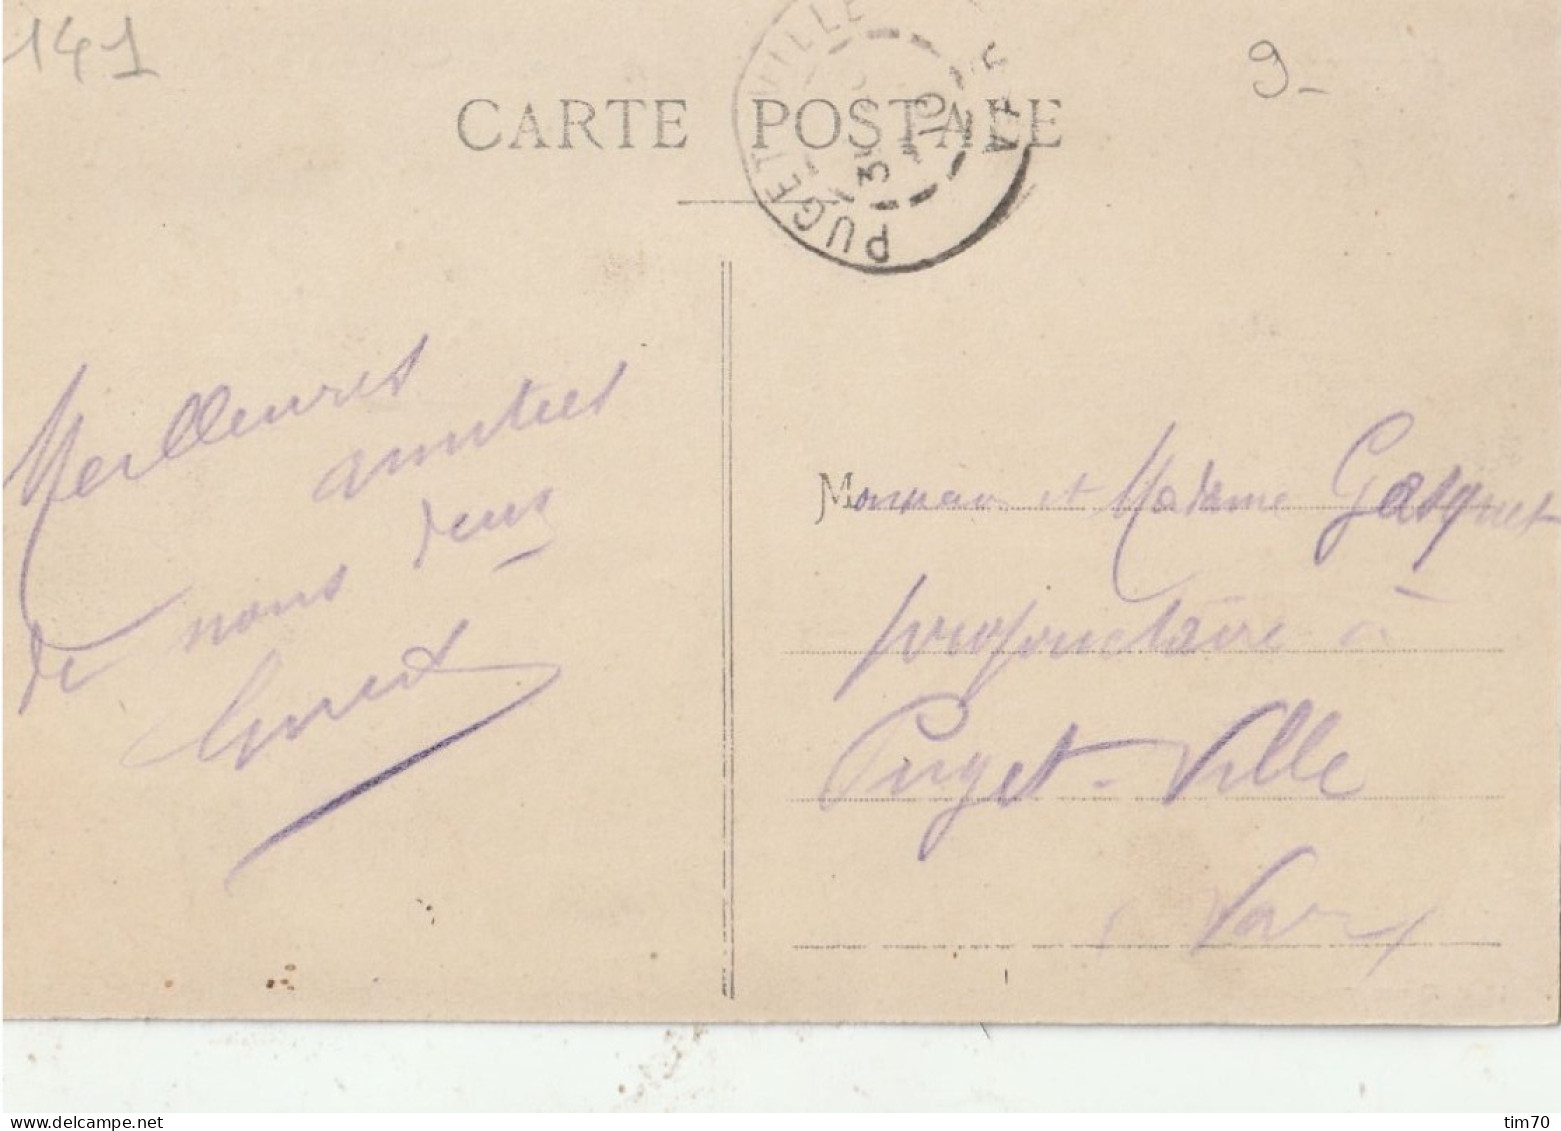 141
9-
CARTE POSTALE
PUGET VILLE
VAR
3
10
Meilleures
amitiés
de nous deux
Monsieur et Madame Gasquet
propriétaire à
Puget-Ville
(Var)
www.delcampe.net
tim70